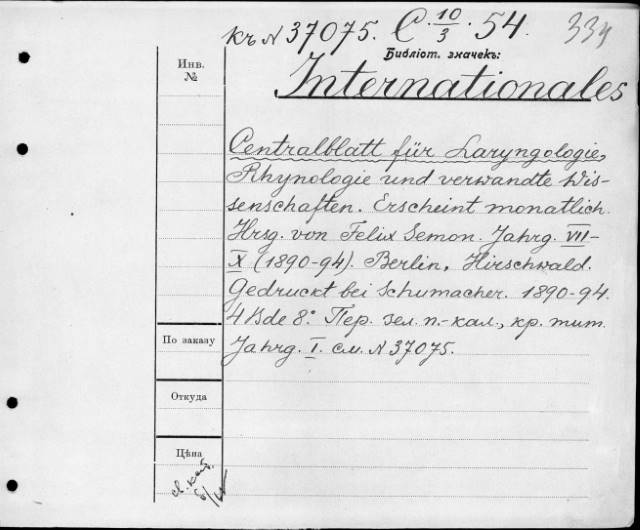 къ N 37075. C. 10/3 . 54. 334
Библіот. значекъ:
Инв.
№
Internationales
Centralblatt für Laryngologie,
Rhynologie und verwandte Wis-
senschaften. Erscheint monatlich.
Hrsg. von Felix Semon. Jahrg. VII-
X (1890-94). Berlin, Hirschwald.
Gedruckt bei Schumacher. 1890-94.
4 Bde 8°. Пер. зел. п.-кал., кр. тит.
Jahrg. I. см. N 37075.
По заказу
Откуда
Цѣна